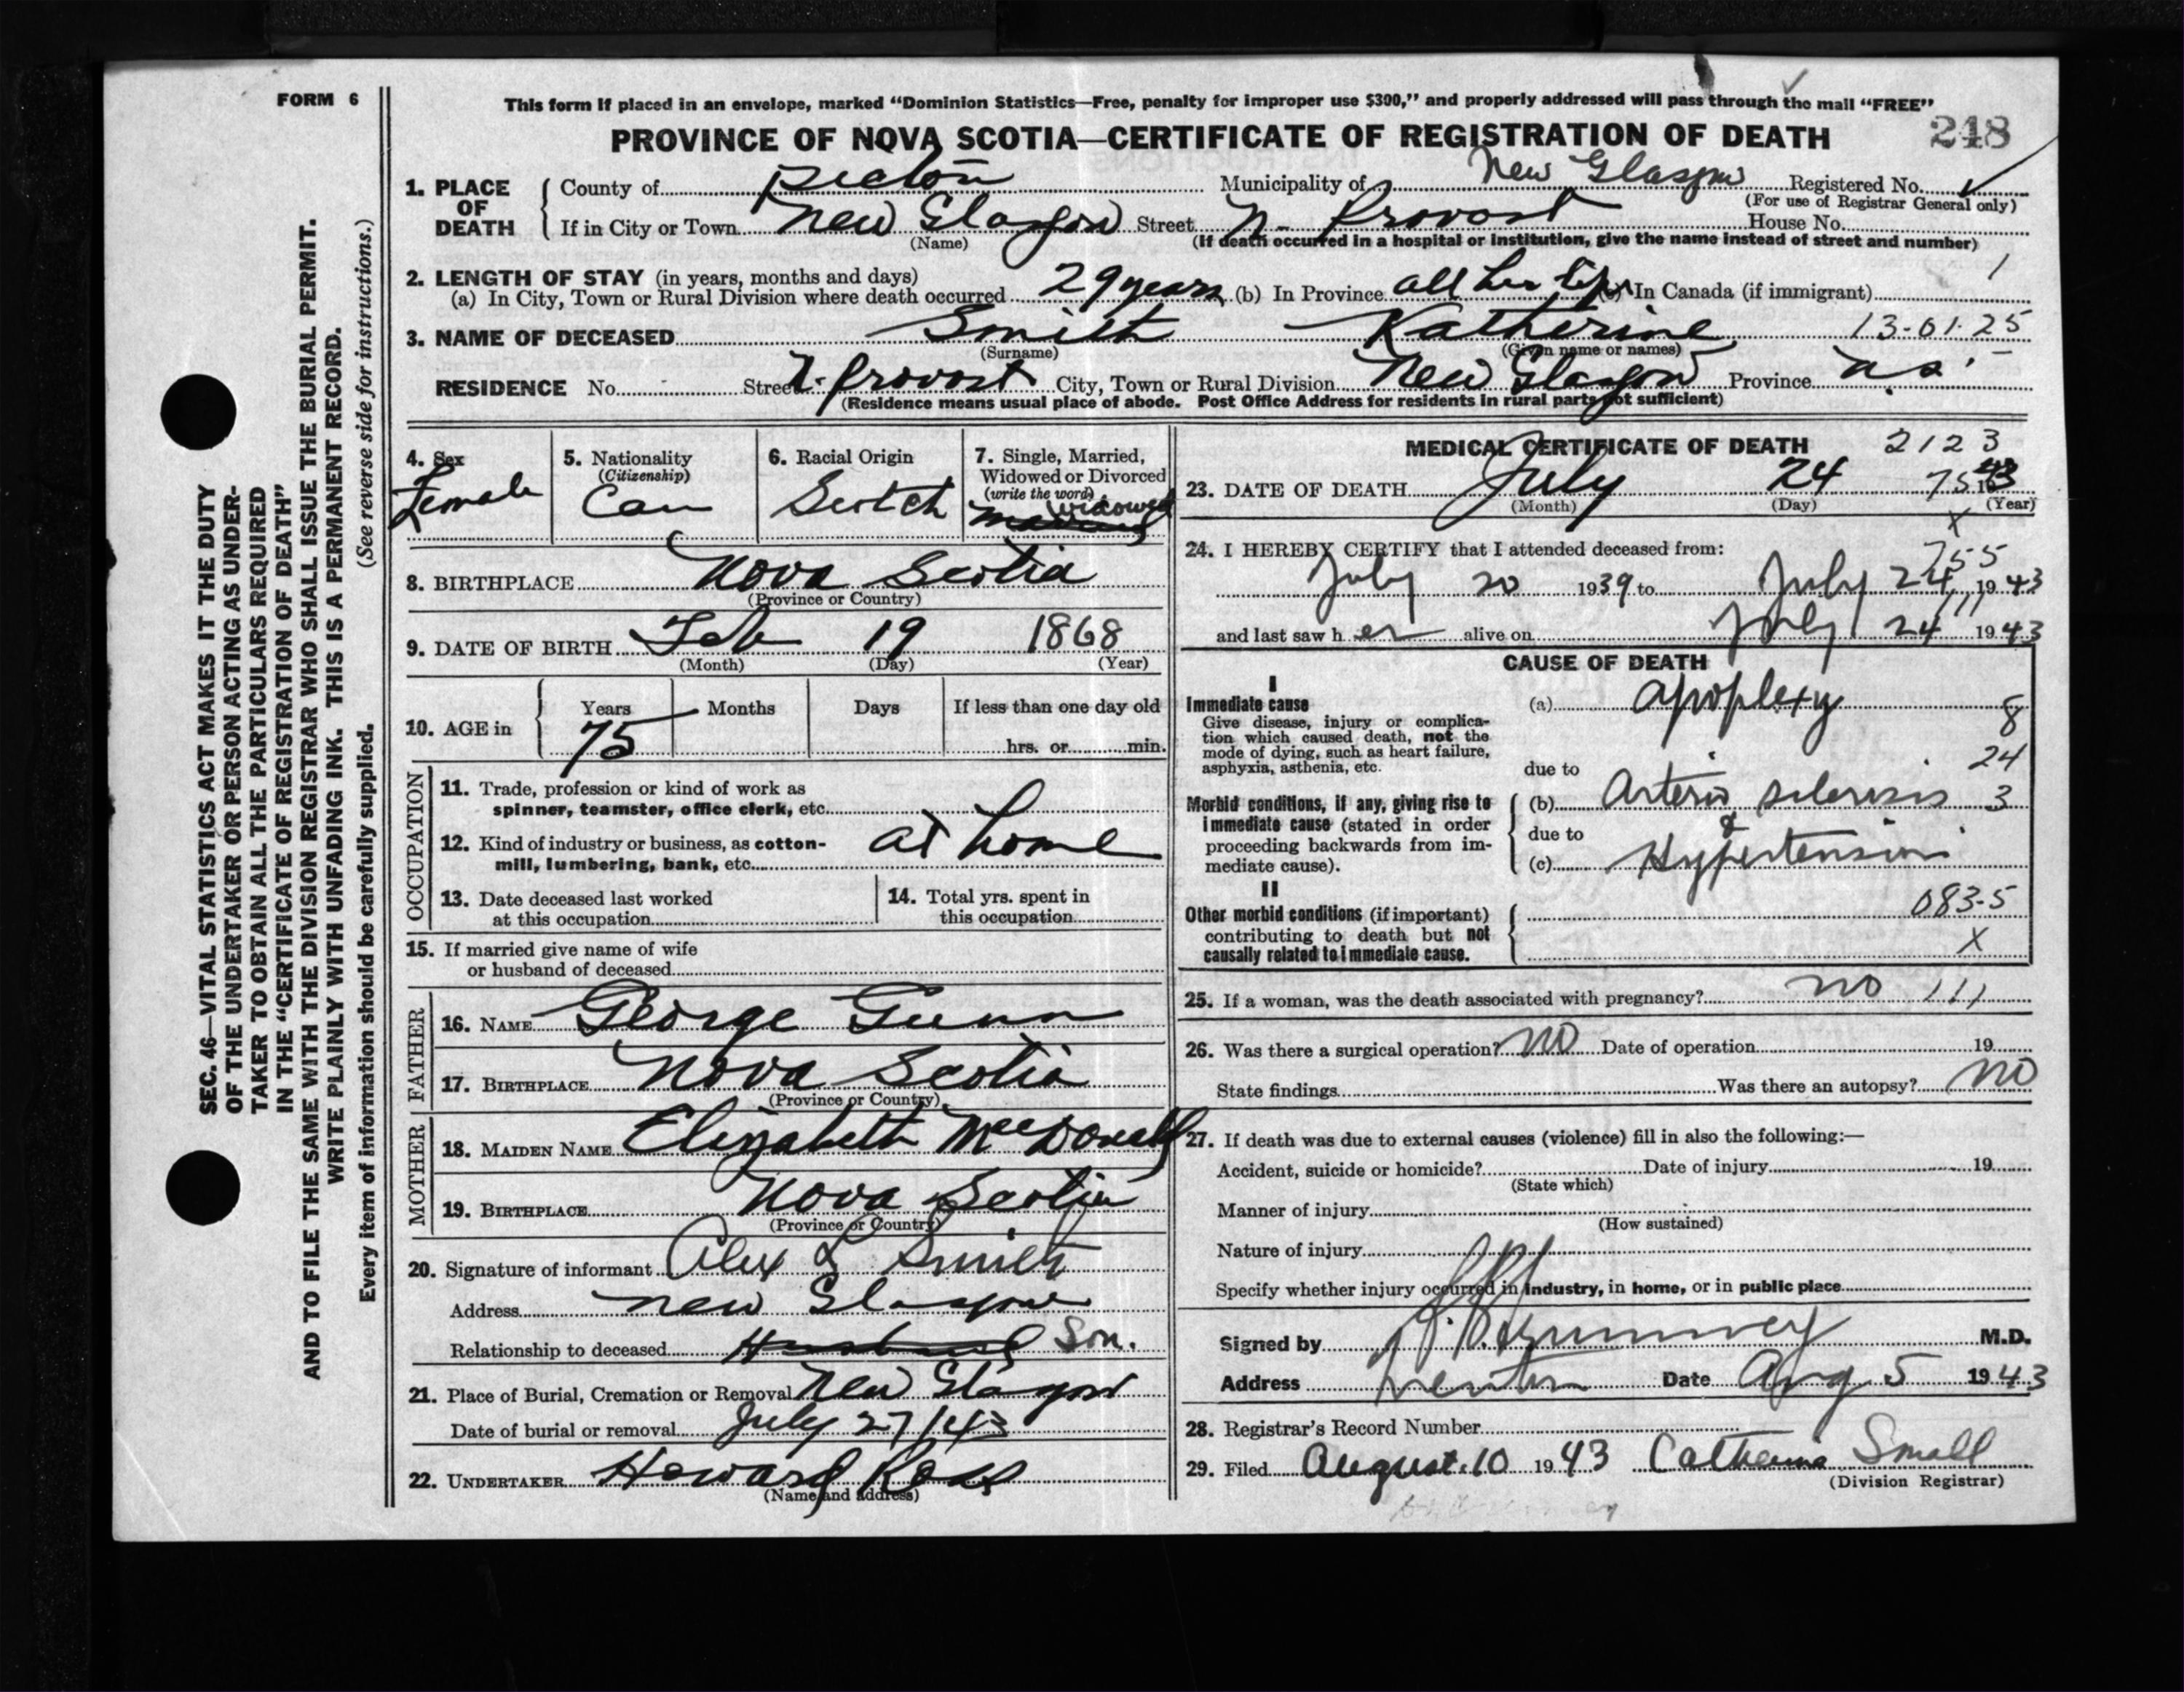 FORM 6
This form if placed in an envelope, marked “Dominion Statistics—Free, penalty for improper use $300,” and properly addressed will pass through the mail “FREE”
PROVINCE OF NOVA SCOTIA—CERTIFICATE OF REGISTRATION OF DEATH 248
1. PLACE OF DEATH
County of Pictou Municipality of New Glasgow Registered No.
(For use of Registrar General only)
If in City or Town New Glasgow Street N. Provost House No.
(Name) (If death occurred in a hospital or institution, give the name instead of street and number)
2. LENGTH OF STAY (in years, months and days) 1
(a) In City, Town or Rural Division where death occurred 29 years (b) In Province all her life (c) In Canada (if immigrant)
3. NAME OF DECEASED Smith Katherine 13-01-25
(Surname) (Given name or names)
RESIDENCE No. Street N. Provost City, Town or Rural Division New Glasgow Province N.S.
(Residence means usual place of abode. Post Office Address for residents in rural parts not sufficient)
4. Sex Female
5. Nationality (Citizenship) Can
6. Racial Origin Scotch
7. Single, Married, Widowed or Divorced (write the word) married widowed
8. BIRTHPLACE Nova Scotia
(Province or Country)
9. DATE OF BIRTH Feb 19 1868
(Month) (Day) (Year)
10. AGE in Years Months Days If less than one day old
75 hrs. or min.
OCCUPATION
11. Trade, profession or kind of work as
spinner, teamster, office clerk, etc.
12. Kind of industry or business, as cotton- at home
mill, lumbering, bank, etc.
13. Date deceased last worked
at this occupation
14. Total yrs. spent in
this occupation
15. If married give name of wife
or husband of deceased
FATHER
16. NAME George Gunn
17. BIRTHPLACE Nova Scotia
(Province or Country)
MOTHER
18. MAIDEN NAME Elizabeth McDonald
19. BIRTHPLACE Nova Scotia
(Province or Country)
20. Signature of informant Alex L Smith
Address New Glasgow
Relationship to deceased Husband Son.
21. Place of Burial, Cremation or Removal New Glasgow
Date of burial or removal July 27/43
22. UNDERTAKER Howard Ross
(Name and address)
MEDICAL CERTIFICATE OF DEATH 2123
23. DATE OF DEATH July 24 43
(Month) (Day) (Year)
24. I HEREBY CERTIFY that I attended deceased from: X
755
July 20 1939 to July 24, 1943
111
and last saw her alive on July 24 1943
CAUSE OF DEATH
I
Immediate cause
Give disease, injury or complica-
tion which caused death, not the
mode of dying, such as heart failure,
asphyxia, asthenia, etc.
(a) Apoplexy 8
due to 24
Morbid conditions, if any, giving rise to
immediate cause (stated in order
proceeding backwards from im-
mediate cause).
(b) Arterio sclerosis 3
due to &
(c) Hypertension
II
Other morbid conditions (if important)
contributing to death but not
causally related to immediate cause.
083-5
X
25. If a woman, was the death associated with pregnancy? no 111
26. Was there a surgical operation? no Date of operation 19
State findings Was there an autopsy? no
27. If death was due to external causes (violence) fill in also the following:—
Accident, suicide or homicide? Date of injury 19
(State which)
Manner of injury
(How sustained)
Nature of injury
Specify whether injury occurred in industry, in home, or in public place
Signed by M.D.
Address Trenton Date Aug 5 1943
28. Registrar's Record Number
29. Filed August 10 1943 Catherine Small
(Division Registrar)
SEC. 46—VITAL STATISTICS ACT MAKES IT THE DUTY
OF THE UNDERTAKER OR PERSON ACTING AS UNDER-
TAKER TO OBTAIN ALL THE PARTICULARS REQUIRED
IN THE “CERTIFICATE OF REGISTRATION OF DEATH”
AND TO FILE THE SAME WITH THE DIVISION REGISTRAR WHO SHALL ISSUE THE BURIAL PERMIT.
WRITE PLAINLY WITH UNFADING INK. THIS IS A PERMANENT RECORD.
(See reverse side for instructions.)
Every item of information should be carefully supplied.